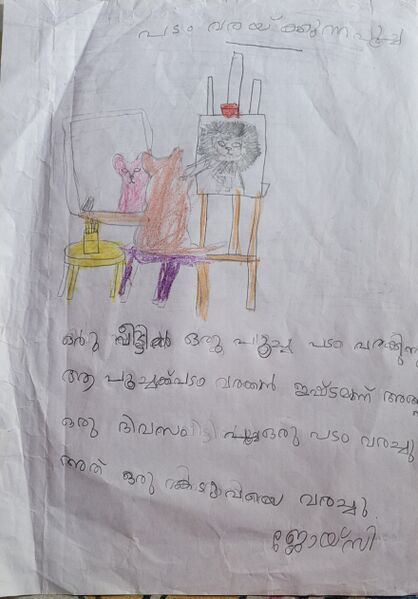 പടം വരയ്ക്കുന്ന പൂച്ച
ഒരു വീട്ടിൽ ഒരു പൂച്ച പടം വരക്കുന്നു
ആ പൂച്ചക്ക് പടം വരക്കൻ ഇഷ്ടമണ്
ഒരു ദിവസം പൂച്ച ഒരു പടം വരച്ചു
അത് ഒരു വരച്ചു.
ജോയ്സി